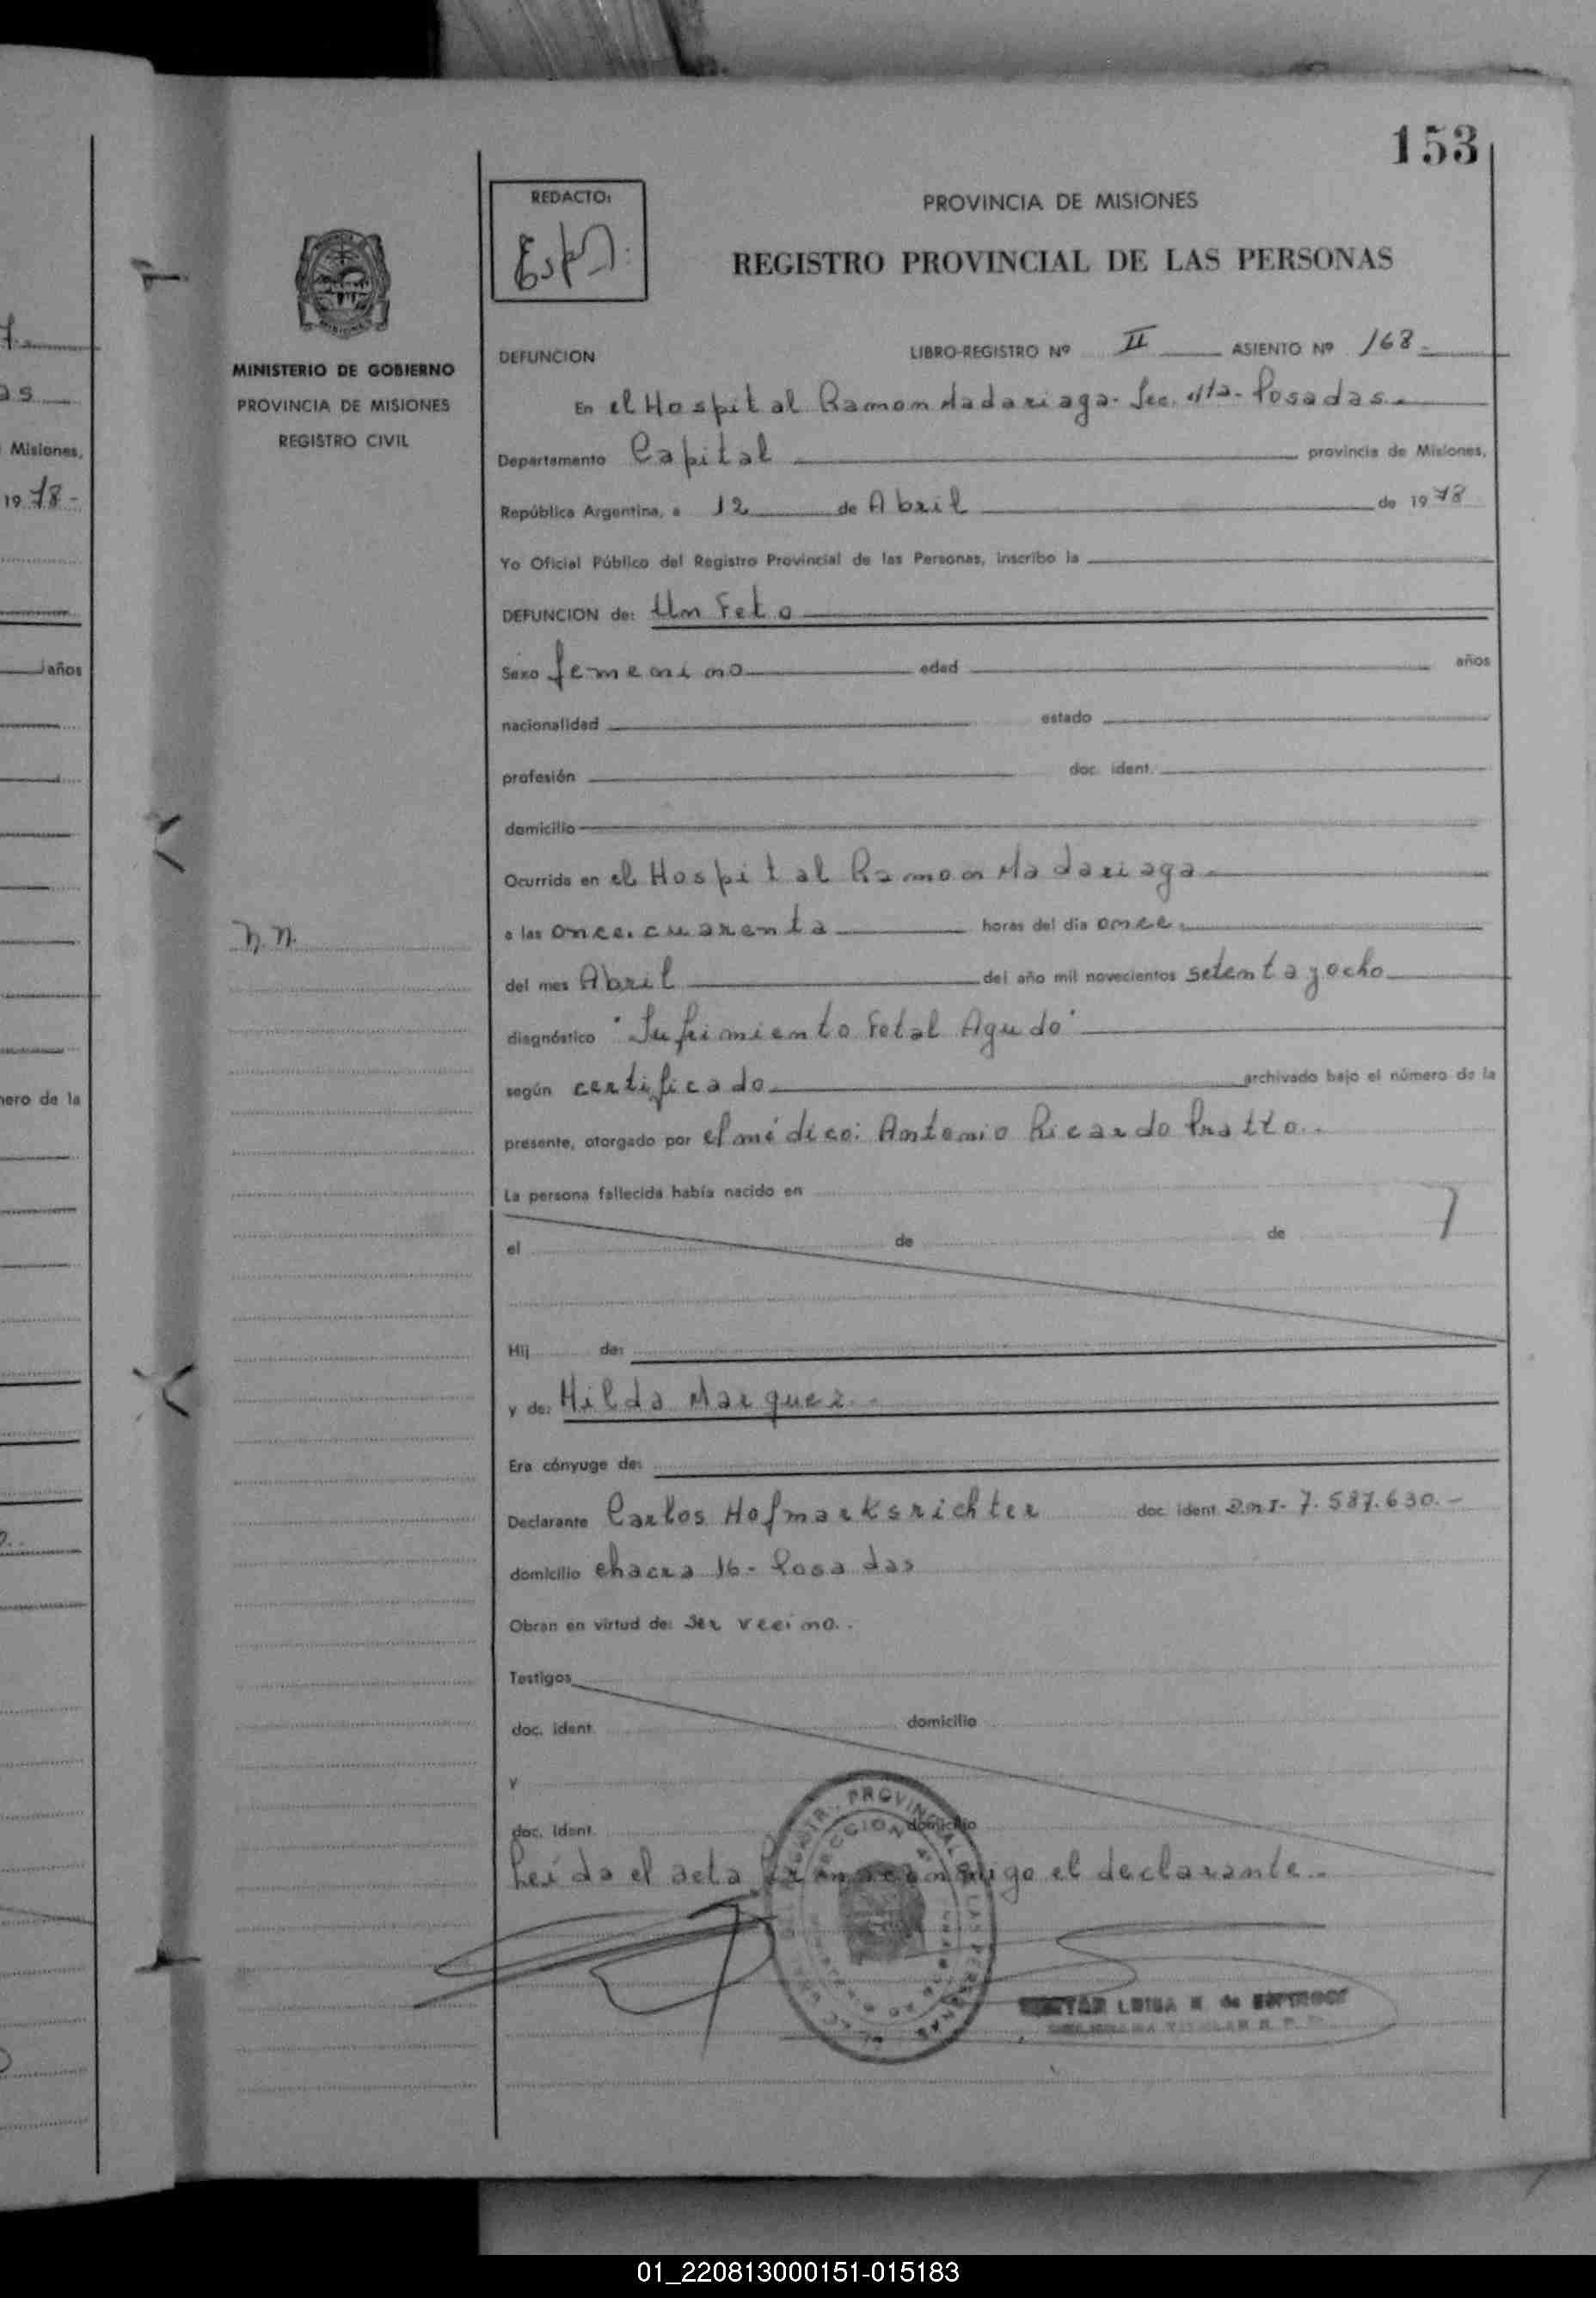 153
REDACTO:
PROVINCIA DE MISIONES
REGISTRO PROVINCIAL DE LAS PERSONAS
MINISTERIO DE GOBIERNO
PROVINCIA DE MISIONES
REGISTRO CIVIL
DEFUNCION LIBRO-REGISTRO Nº II ASIENTO Nº 168
En el Hospital Ramon Madariaga - Sec. 4ta - Posadas.
Departamento Capital provincia de Misiones,
República Argentina, a 12 de Abril de 1978
Yo Oficial Público del Registro Provincial de las Personas, inscribo la
DEFUNCION de: Un Feto
Sexo femenino edad años
nacionalidad estado
profesión doc. ident.
domicilio
Ocurrida en el Hospital Ramon Madariaga
N.N.
a las once.cuarenta horas del dia once
del mes Abril del año mil novecientos setenta y ocho
diagnóstico "Sufrimiento Fetal Agudo"
según certificado archivado bajo el número de la
presente, otorgado por el médico: Antonio Ricardo Pratto..
La persona fallecida había nacido en
el de de
Hij de:
y de: Hilda Marquez.-
Era cónyuge de:
Declarante Carlos Hofmarksrichter doc. ident. D.N.I- 7.587.630.-
domicilio chacra 16- Posadas
Obran en virtud de: Ser vecino..
Testigos
doc. ident. domicilio
y
doc. ident. domicilio
Leída el acta el declarante.-
Misiones,
1978-
años
01_220813000151-015183